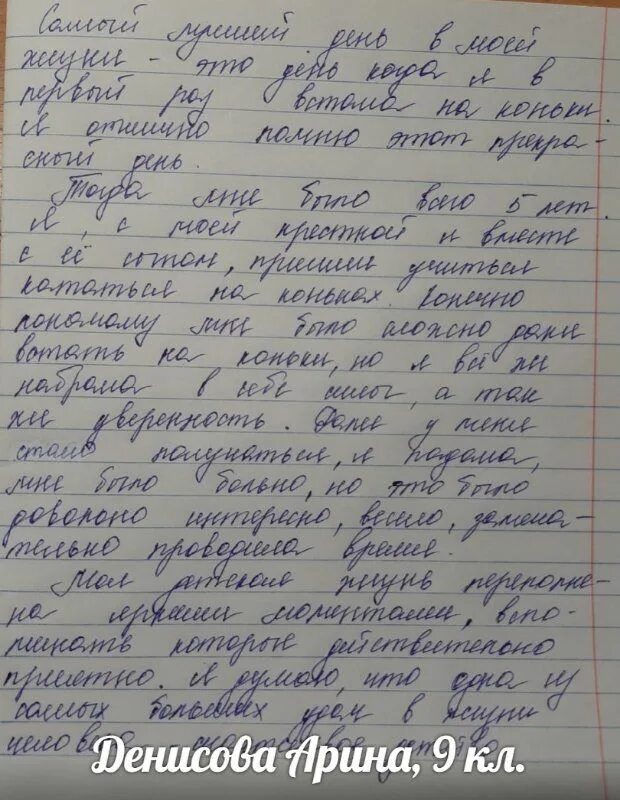 Самый лучший день в моей
жизни - это день когда я в
первый раз встала на коньки.
Я отлично помню этот прекра-
сный день.
Тогда мне было всего 5 лет.
Я, с моей крестной и вместе
с её сыном, пришли учиться
кататься на коньках. Конечно
поначалу мне было сложно даже
встать на коньки, но я всё же
набрала в себе силы, а так
же уверенность. Далее у меня
стало получаться, я падала,
мне было больно, но это было
довольно интересно, весело, замеча-
тельно проводила время.
Моя детская жизнь переполне-
на яркими моментами, вспо-
минать которые действительно
приятно. Я думаю, что одна из
самых больших удач в жизни
человека - счастливое детство.
Денисова Арина, 9 кл.